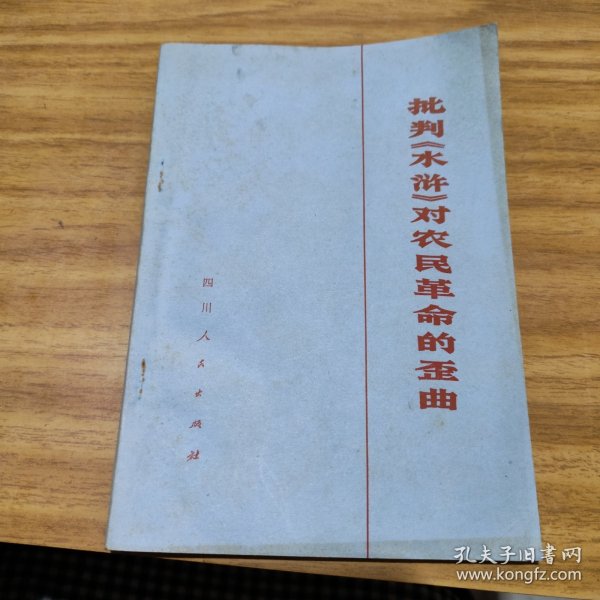 批判《水浒》对农民革命的歪曲
四川人民出版社
孔夫子旧书网
www.kongfz.com